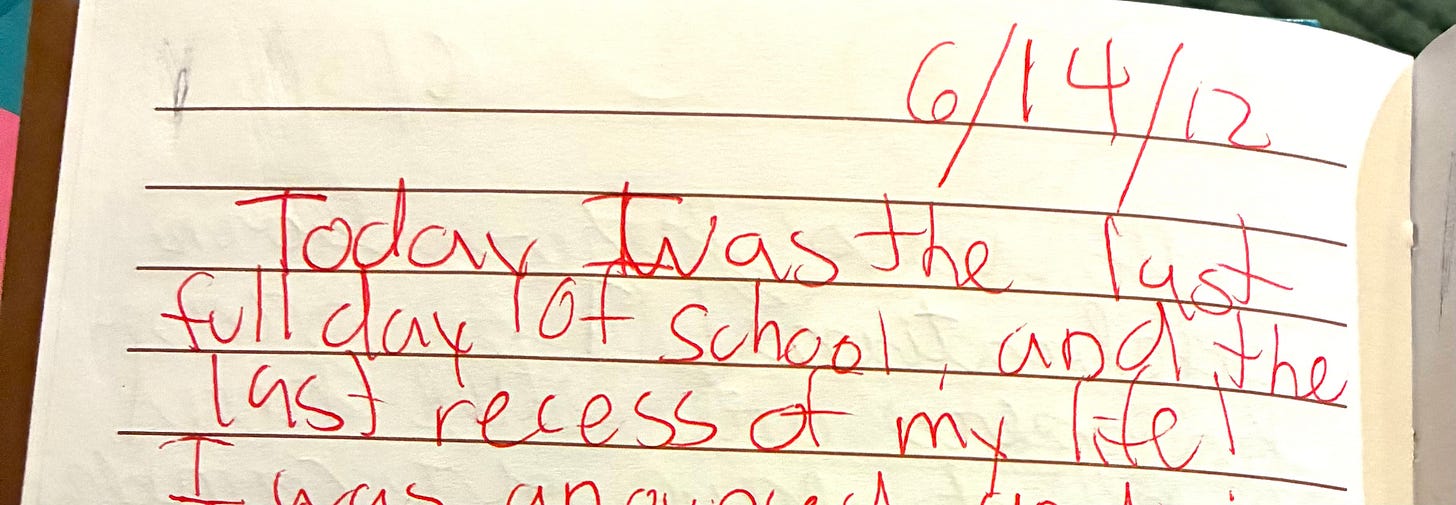 6/14/12
Today was the last
full day of school, and the
last recess of my life!
I was